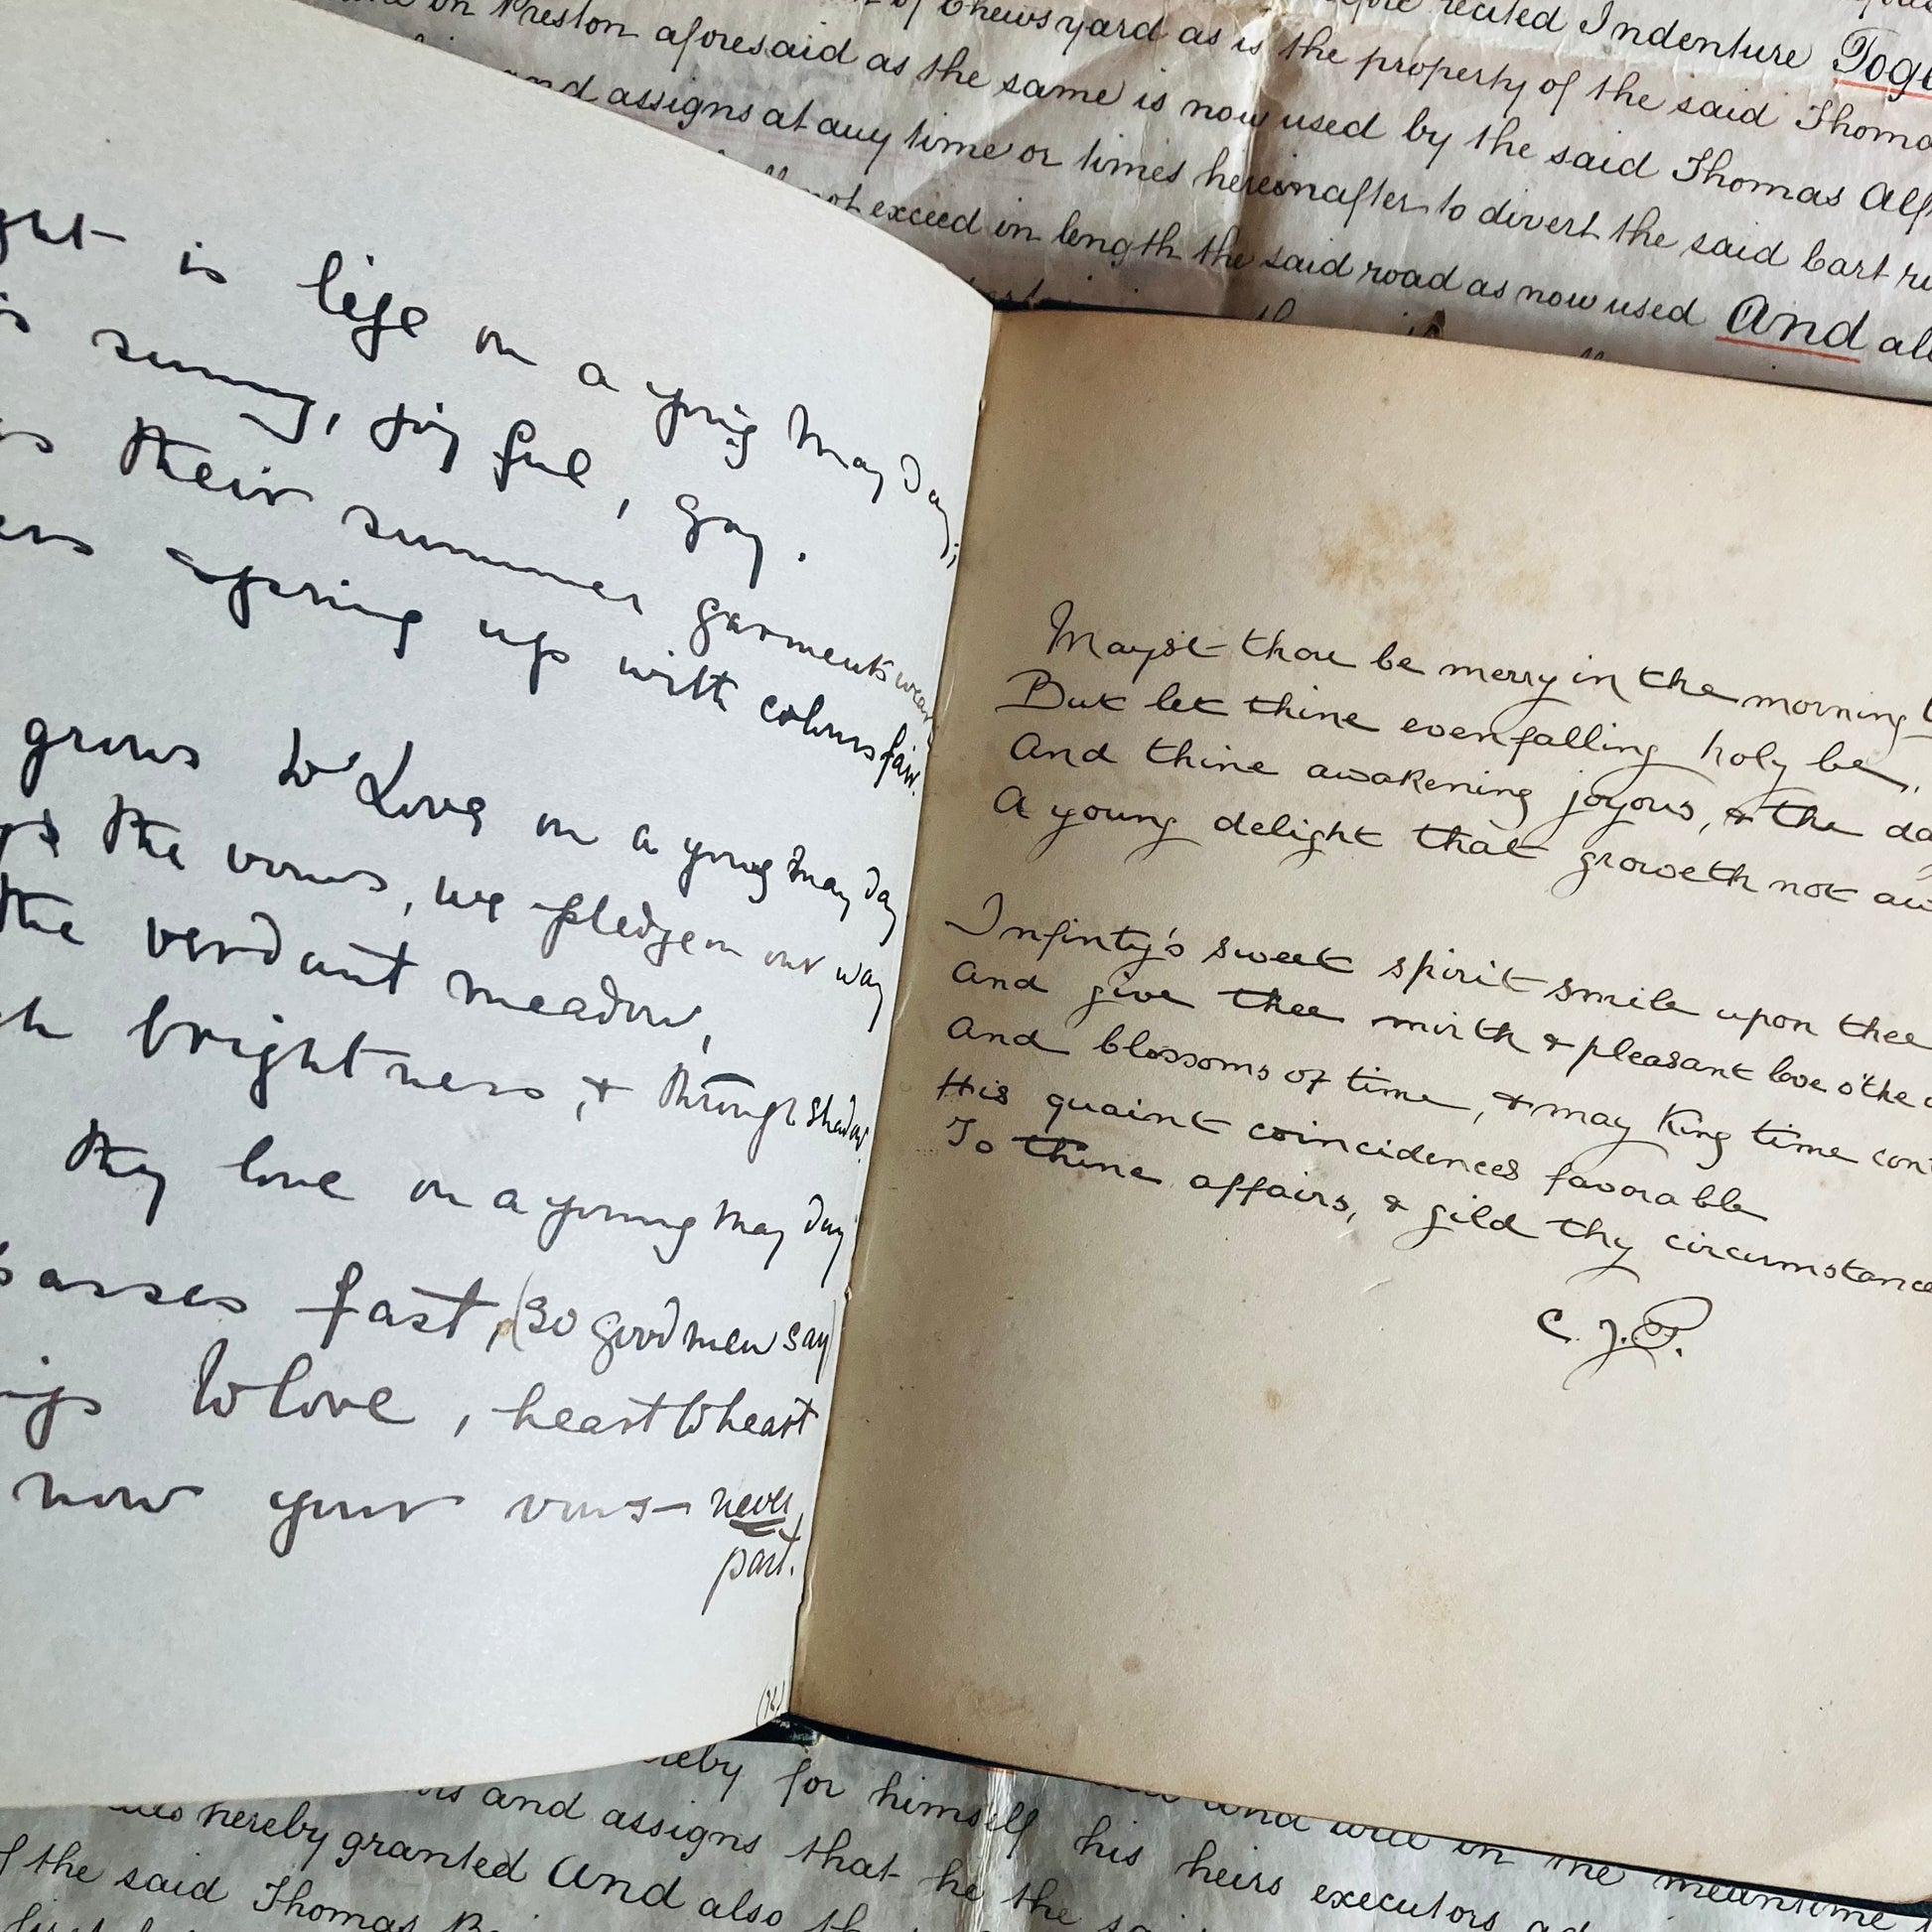 in Preston aforesaid as the same is now used by the said Thomas
of Chewsyard as is the property of the said
recited Indenture
and assigns at any time or times hereinafter to divert the said Cart
not exceed in length the said road as now used And
is life on a young May day,
sunny, joyful, gay.
their summer garments wear
spring up with colours fair.
grows to Love on a young May day
the vows, we pledge on our way
the verdant meadow,
brightness, & through shadow.
thy love on a young May day
passes fast, (so good men say)
to love, heart to heart
now your vows – never
part.
Mayst thou be merry in the morning
But let thine evenfalling holy be,
And thine awakening joyous, & the
A young delight that groweth not
Infinty's sweet spirit smile upon thee
And give thee mirth & pleasant love o'the
And blossoms of time, & may King time
His quaint coincidences favorable
To thine affairs, & gild thy circumstance
C.J.P.
for himself his heirs executors
and will in the meantime
and assigns that he the
hereby granted And also
the said Thomas